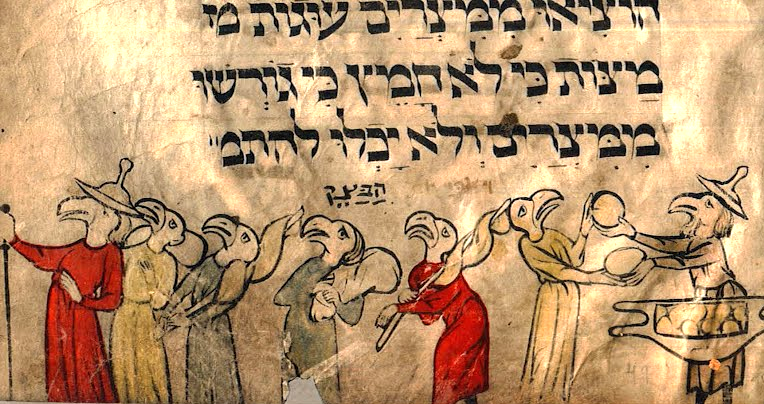 הוציאו ממיצרים עגות מי
מיצות כי לא חמיץ כי גורשו
ממיצרים ולא יכלו להתמ'
הַבָּצֵק